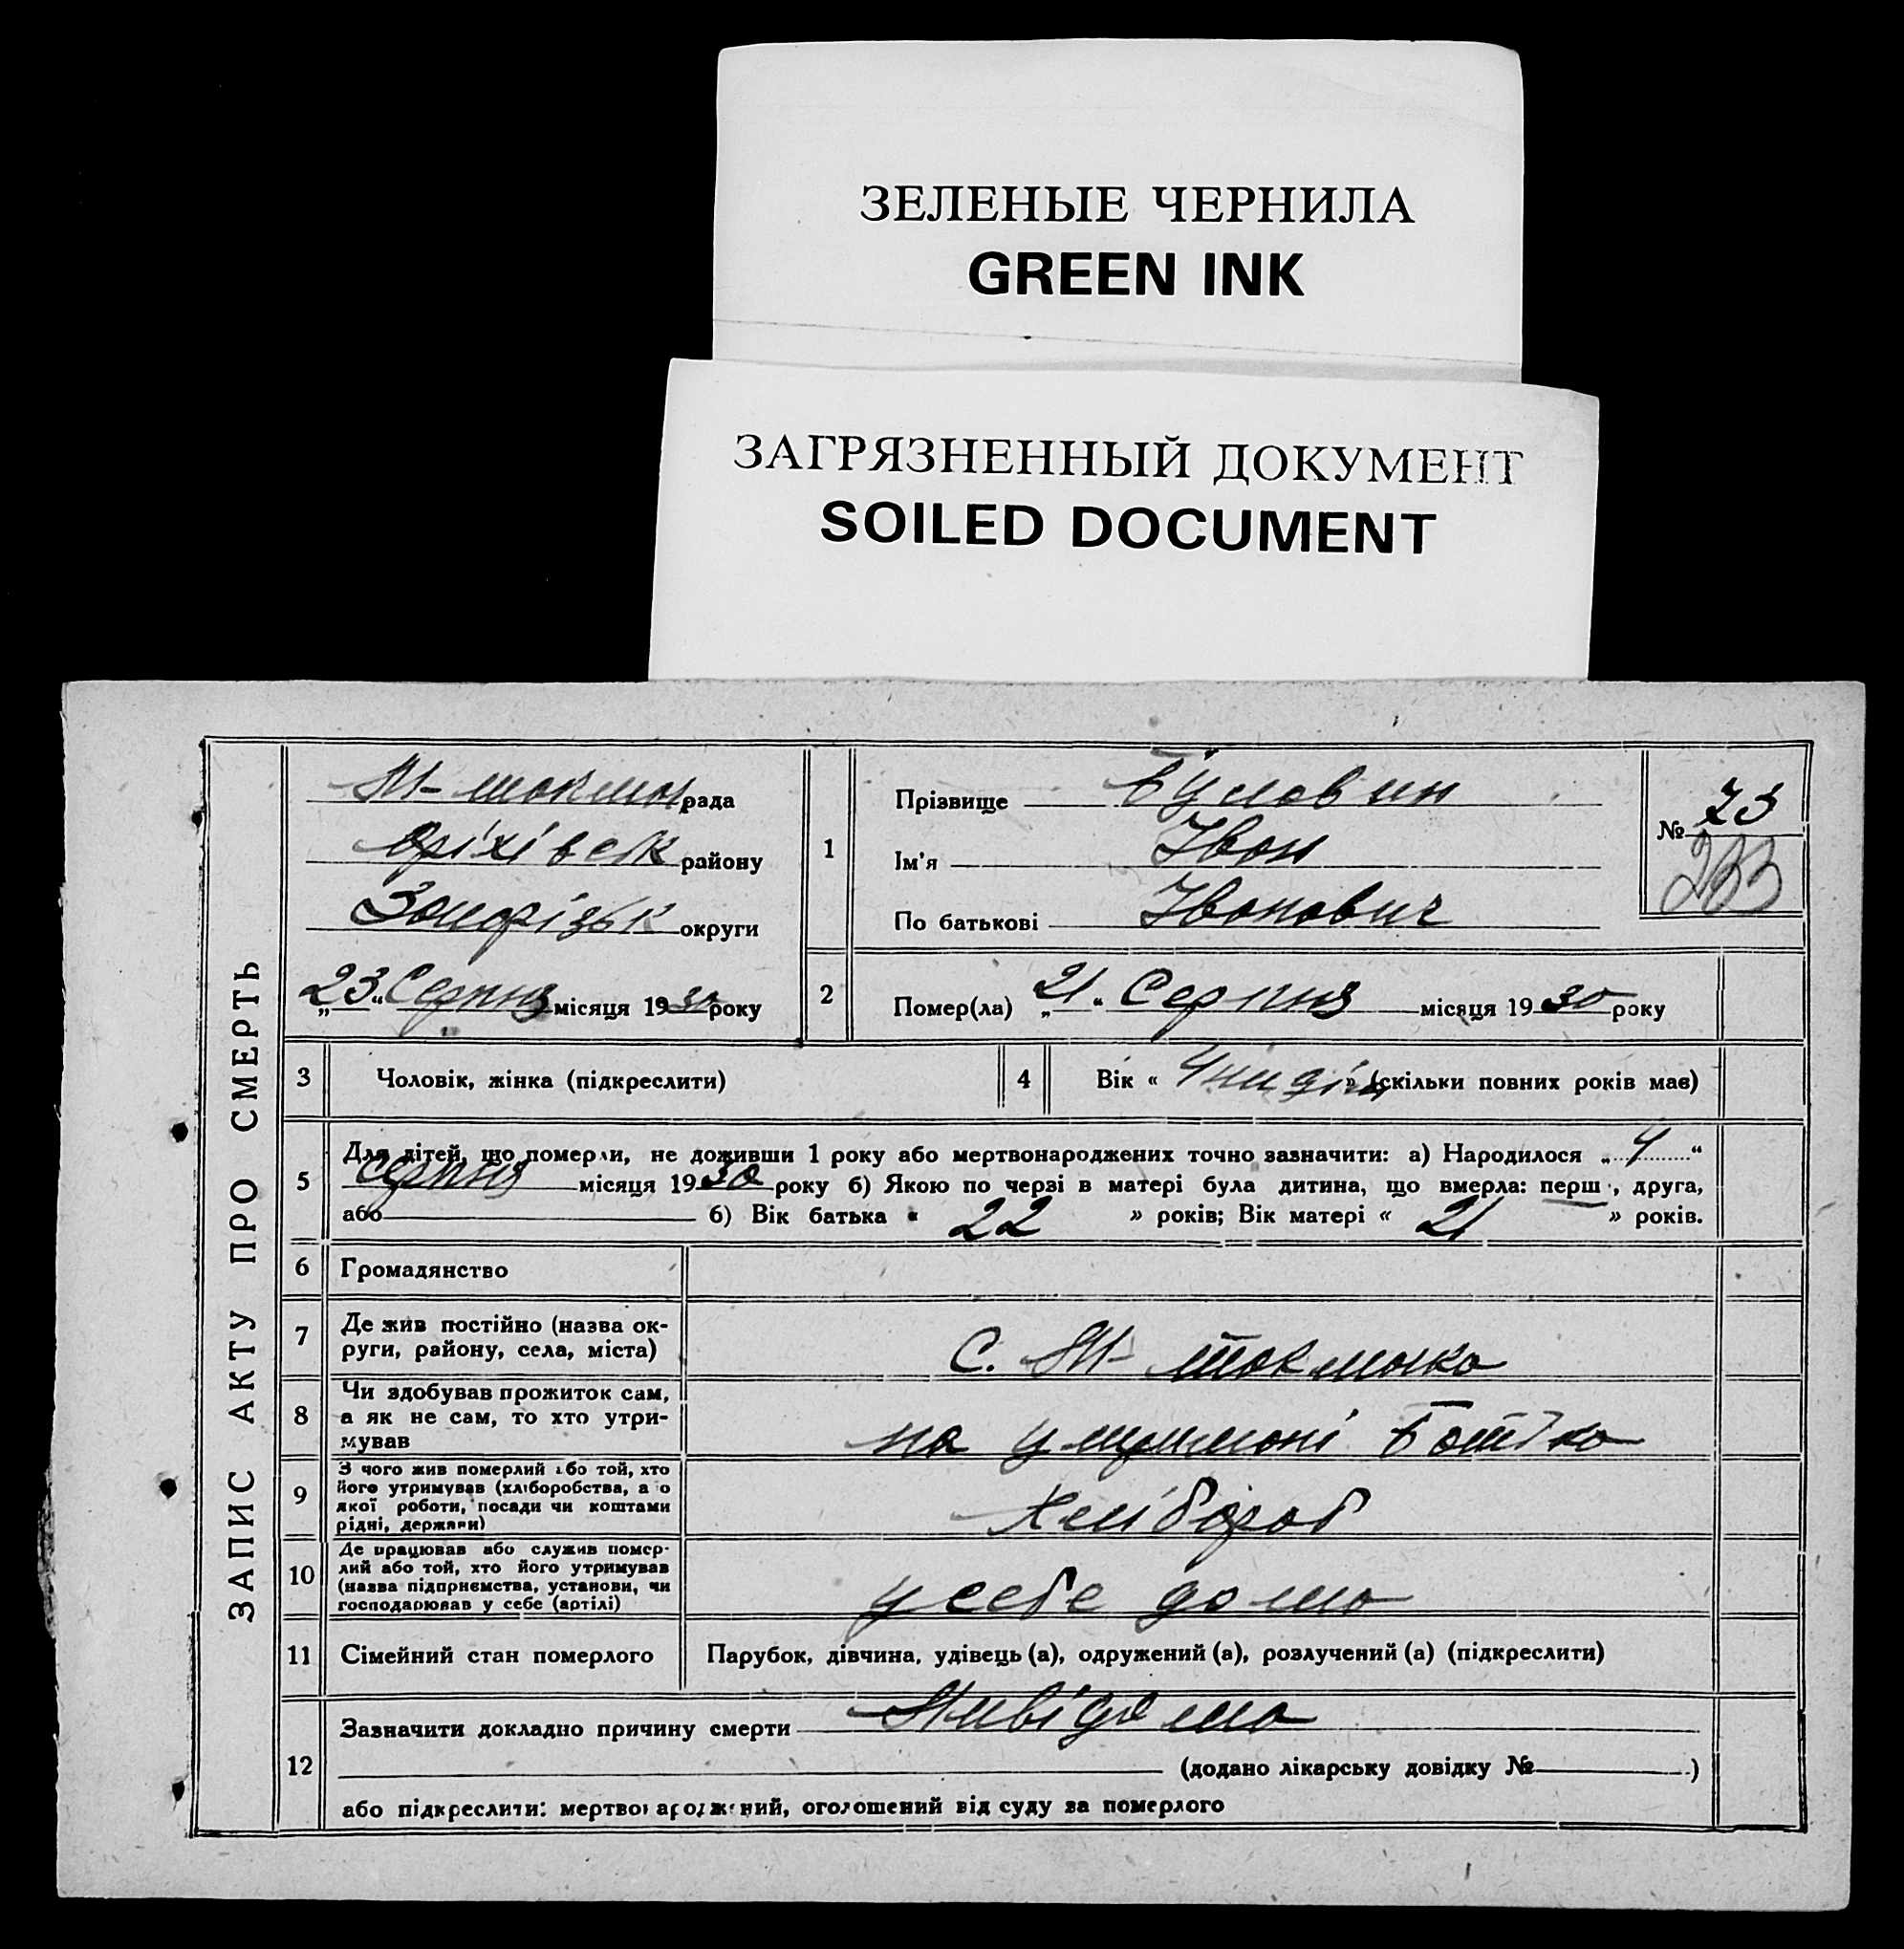 ЗЕЛЕНЫЕ ЧЕРНИЛА
GREEN INK
ЗАГРЯЗНЕННЫЙ ДОКУМЕНТ
SOILED DOCUMENT
ЗАПИС АКТУ ПРО СМЕРТЬ
М-токмач рада
Оріхівськ району
Запорізьк округи
„23“ Серпня місяця 1930 року
1
Прізвище Буловин
Ім'я Іван
По батькові Іванович
№ 73
233
2 Помер(ла) „21“ Серпня місяця 1930 року
3 Чоловік, жінка (підкреслити)
4 Вік « 4 ниділі » (скільки повних років має)
5 Для дітей, що померли, не доживши 1 року або мертвонароджених точно зазначити: а) Народилося „4“
серпня місяця 1930 року б) Якою по черзі в матері була дитина, що вмерла: перш , друга,
або б) Вік батька « 22 » років; Вік матері « 21 » років.
6 Громадянство
7 Де жив постійно (назва ок-
руги, району, села, міста)
С. М-токмачка
8 Чи здобував прожиток сам,
а як не сам, то хто утри-
мував
на утримані батька
9 З чого жив померлий або той, хто
його утримував (хліборобства, а о
якої роботи, посади чи коштами
рідні, держави)
Хлібороб
10 Де працював або служив помер-
лий або той, хто його утримував
(назва підприємства, установи, чи
господарював у себе (артілі)
у себе дома
11 Сімейний стан померлого Парубок, дівчина, удівець (а), одружений (а), розлучений (а) (підкреслити)
12 Зазначити докладно причину смерти Нивідома
(додано лікарську довідку № )
або підкреслити: мертвонароджений, оголошений від суду за померлого